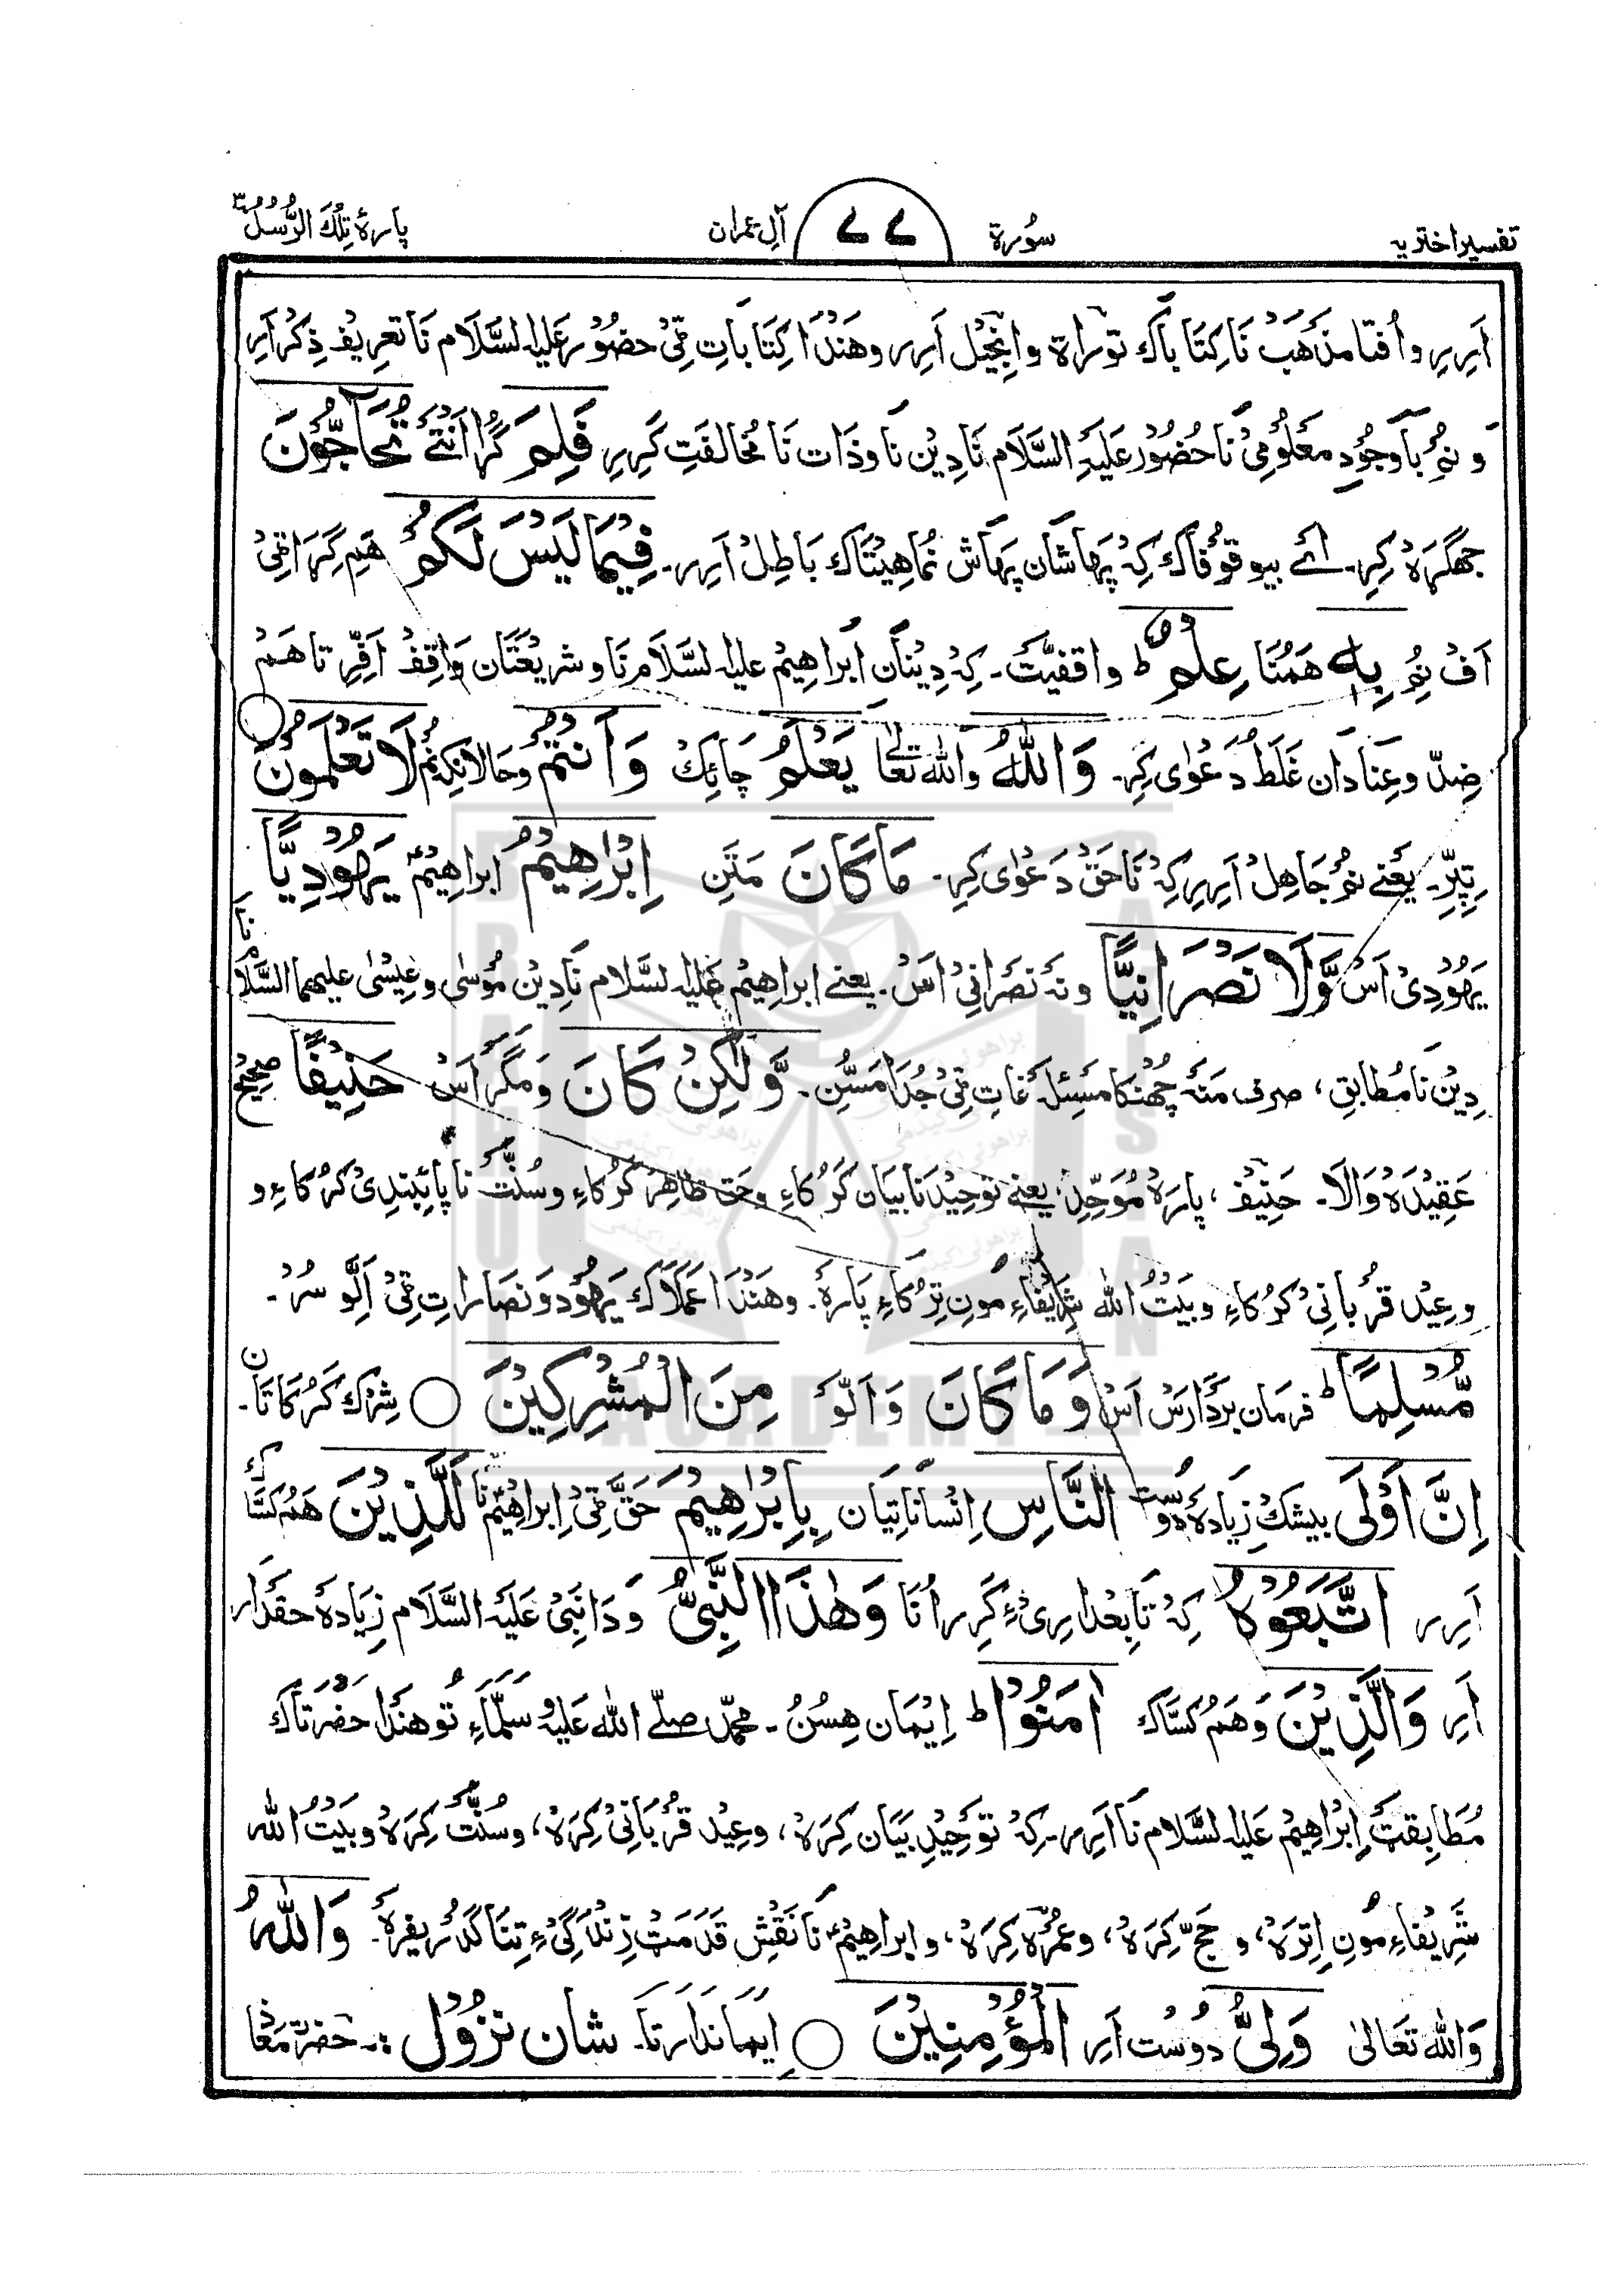 تفسیر اختریہ سُورة ۷۷ آلِ عمران پارۂ تِلْكَ الرُّسُلُ ۳
اَرِیرِ و اُفتا مذهَبْ نَا كِتَاباك توراة و اِنْجِیْل اَرِیر و هَنْدَا كِتَاباتِ ٹی حضُوْر عَلیہ السَّلَام نَا تعرِیف ذِكْر اَرِ
وَ نُمْ بَاوجُوْدِ مَعلُومِیْ نَا حُضُوْر عَلَیْہِ السَّلَام نَا دِیْن نَا و ذَات نَا مُخالفَتِ كَرِیرِ فَلِمَ گُڑا اَنْتَےْ تُحَآجُّوْنَ
جھگڑَهْ كِرِ۔ اَے بیوقوُفاك كِہْ پَڑهاشَان پَڑهَاش نُمَا هِیْتَاك بَاطِلْ اَرِیر۔ فِیْمَا لَیْسَ لَكُمْ هَمِ گِڑَا ٹِیْ
اَفْ نُمْ بِهٖ هَمُنَا عِلْمٌ ط واقفیَّت۔ كِہْ دِیْنَان اَبراهِیْم علیہ السَّلَام نَا و شریعْتَان وَاقِفْ اَفّرِ تَا هَمْ
ضِدّ و عِنادَان غَلَطْ دَعْوٰی كِرِ۔ وَاللّٰهُ واللّٰہ تعَالٰے یَعْلَمُ چَائِكْ وَاَنْتُمْ و حَالانكِہ نُمْ لَا تَعْلَمُوْنَ ○
تِپّرِ۔ یَعْنے نُمْ جَاهِلْ اَرِیر كِہْ نَاحَقْ دَعْوٰی كِرِ۔ مَا كَانَ مَتَن اِبْرٰهِیْمُ ابراهِیْمؑ یَهُوْدِیًّا
یَهُوْدِیْ اَسْ وَّلَا نَصْرَانِیًّا و نَہ نَصْرَانِیْ اَسْ۔ یعنے ابراهِیْم عَلیہ السَّلَام نَا دِیْن مُوْسٰی و عِیْسٰی علیهما السَّلَام نَا
دِیْن نَا مُطابِقِ، صرف مَنَہ چُهنكَا مَسْئِلَہ غَاتِ ٹِیْ جُدَا مَسُّن۔ وَّلٰكِنْ كَانَ وَ مَگَر اَسْ حَنِیْفًا صحِیْحْ
عَقِیْدَهْ وَالَا۔ حَنِیْف، پَارَهْ مُوَحِّدِ، یعنے توحِیْد نَا بیَان كَرُكاءِ و حَق ظَاهِرْ كَرُكاءِ و سُنَّتْ نَا پَابَنْدِیْ كَرُكاءِ و
و عِیْد قُربَانِیْ كَرُكاءِ و بَیْتُ اللّٰہ شَرِیْفَاءِ مُونِ تِرُكاءِ پَارَهْ۔ و هَنْدَا عَمَلَاك یَهُوْد وَ نَصَارَاتِ ٹِیْ اَلَّو سُرْ۔
مُّسْلِمًا ط فرمَان بَرْدَارَسْ اَسْ وَمَا كَانَ وَ اَلّوْ مِنَ الْمُشْرِكِیْنَ ○ شِرْك كَرُكَا تَان۔
اِنَّ اَوْلَی بیشكْ زِیَادَهْ دوُسْت النَّاسِ اِنْسَانَاتِیَان بِاِبْرٰهِیْمَ حَقّ ٹِیْ اِبراهِیْمؑ نَا لَلَّذِیْنَ هَمْ كَسَّاك
اَرِیر اتَّبَعُوْهُ كِہْ تَابِعْدَارِیْ كَرِیر اُنَا وَهٰذَا النَّبِیُّ وَ دَا نَبِیْ عَلَیْہِ السَّلَام زِیَادَهْ حقدَار
اَرِ وَالَّذِیْنَ وَ هَمْ كسَّاك اٰمَنُوْا ط اِیْمَان هِسُنْ۔ محمّد صلّے اللّٰہ عَلیْہِ وسَلَّمَاءِ تُو هَنْدَا حضْرتَاك
مُطَابِقَتْ اِبْرَاهِیْم عَلیہ السَّلَام نَا اَرِیر۔ كِہْ تَوحِیْدِ بَیَان كِرَهْ، و عِیْد قُربَانِیْ كِرَهْ، و سُنَّتْ كِرَهْ و بَیْتُ اللّٰہ
شَرِیْفَاءِ مُونِ اِترَهْ، و حَجّ كِرَهْ، و عُمْرَه كِرَهْ، و ابراهِیْمؑ نَا نَقْشِ قَدَمَتْ زِنْدَگِیْ ءِ تِنَا گدرِیفرَهْ۔ وَاللّٰهُ
وَاللّٰہ تَعَالٰی وَلِیُّ دُوْسْت اَرِ الْمُؤْمِنِیْنَ ○ اِیمَاندَار تَا۔ شان نزُوْل :۔ حضرت مَعَاذ